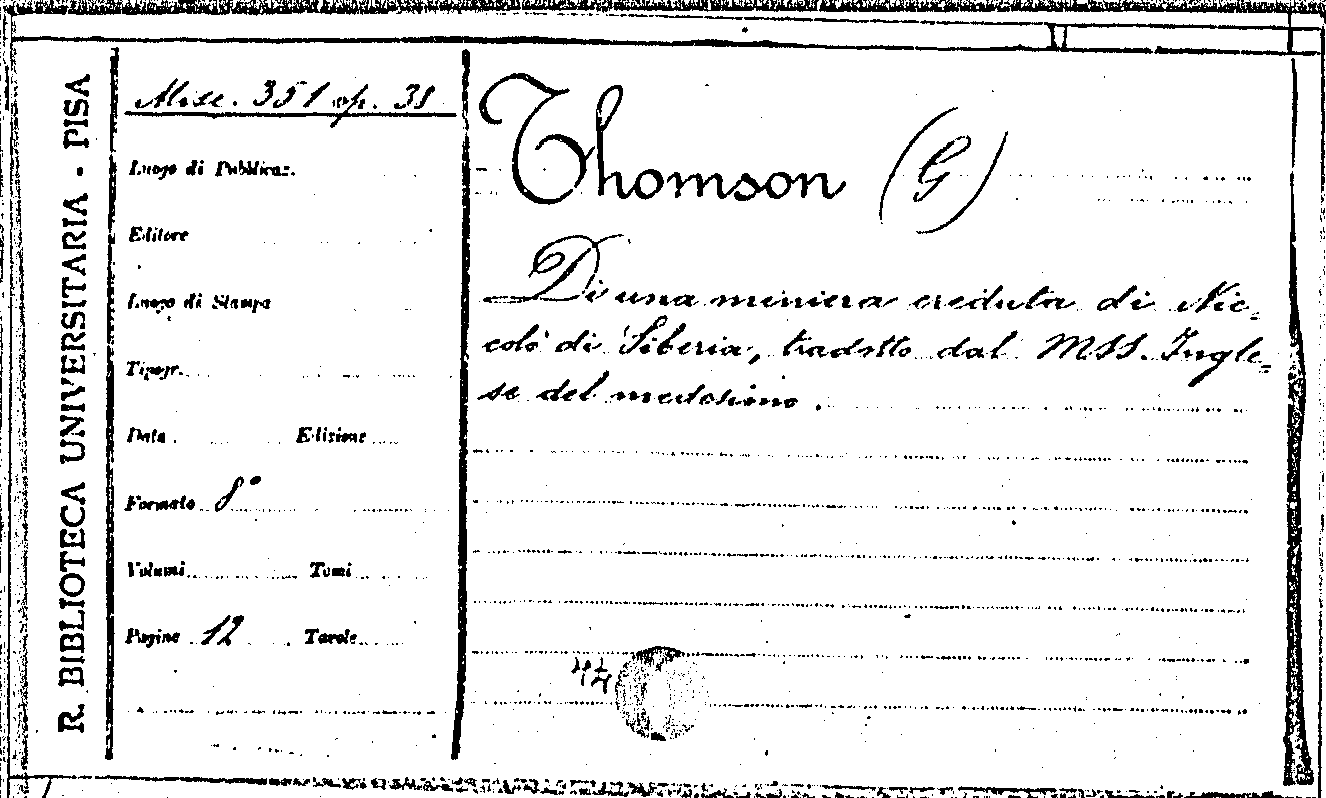 R. BIBLIOTECA UNIVERSITARIA - PISA
Misc. 351 op. 38
Luogo di Pubblicaz.
Editore
Luogo di Stampa
Tipogr.
Data Edizione
Formato 8°
Volumi Tomi
Pagine 12 Tavole
Thomson (G)
Di una miniera creduta di Nic=
colò di Siberia, tradotto dal MSS. Ingle=
se del medesimo.